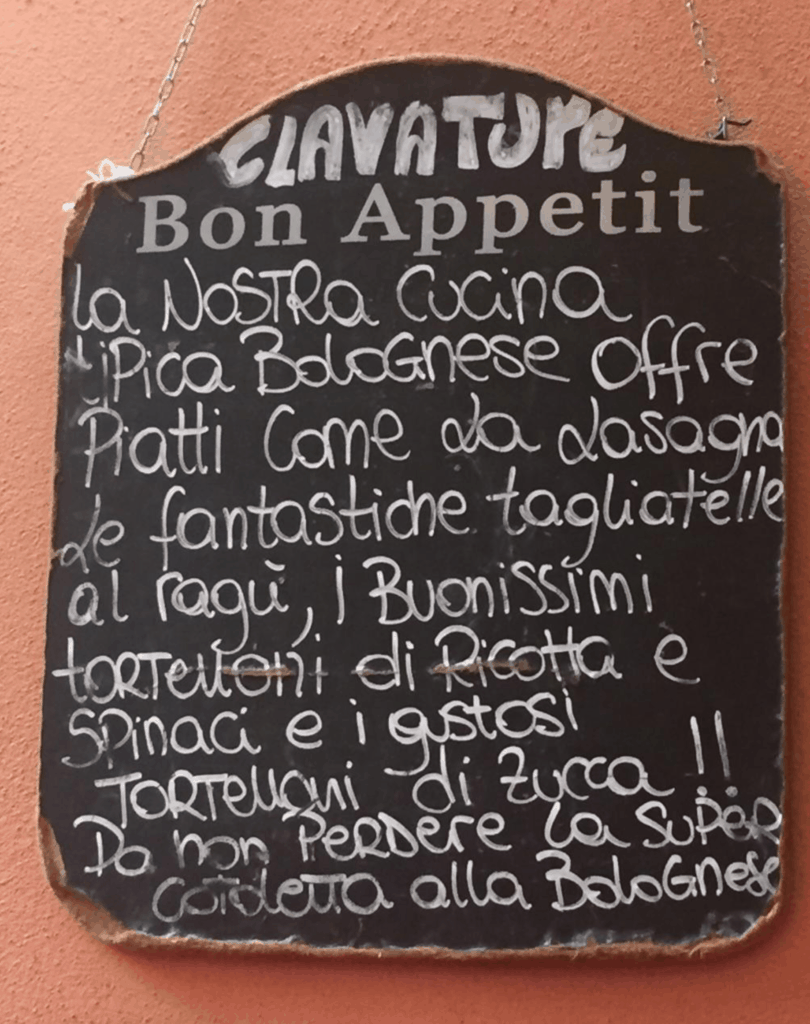 CLAVATURE
Bon Appetit
La NOSTRa Cucina
tiPica BoloGnese offre
Piatti Come La Lasagna
Le fantastiche tagliatelle
al ragù, i Buonissimi
TORTelloni di Ricotta e
SPinaci e i gustosi
TORTelloni di Zucca !!
Da non PeRDere La SuPeR
cotoletta alla BoloGnese